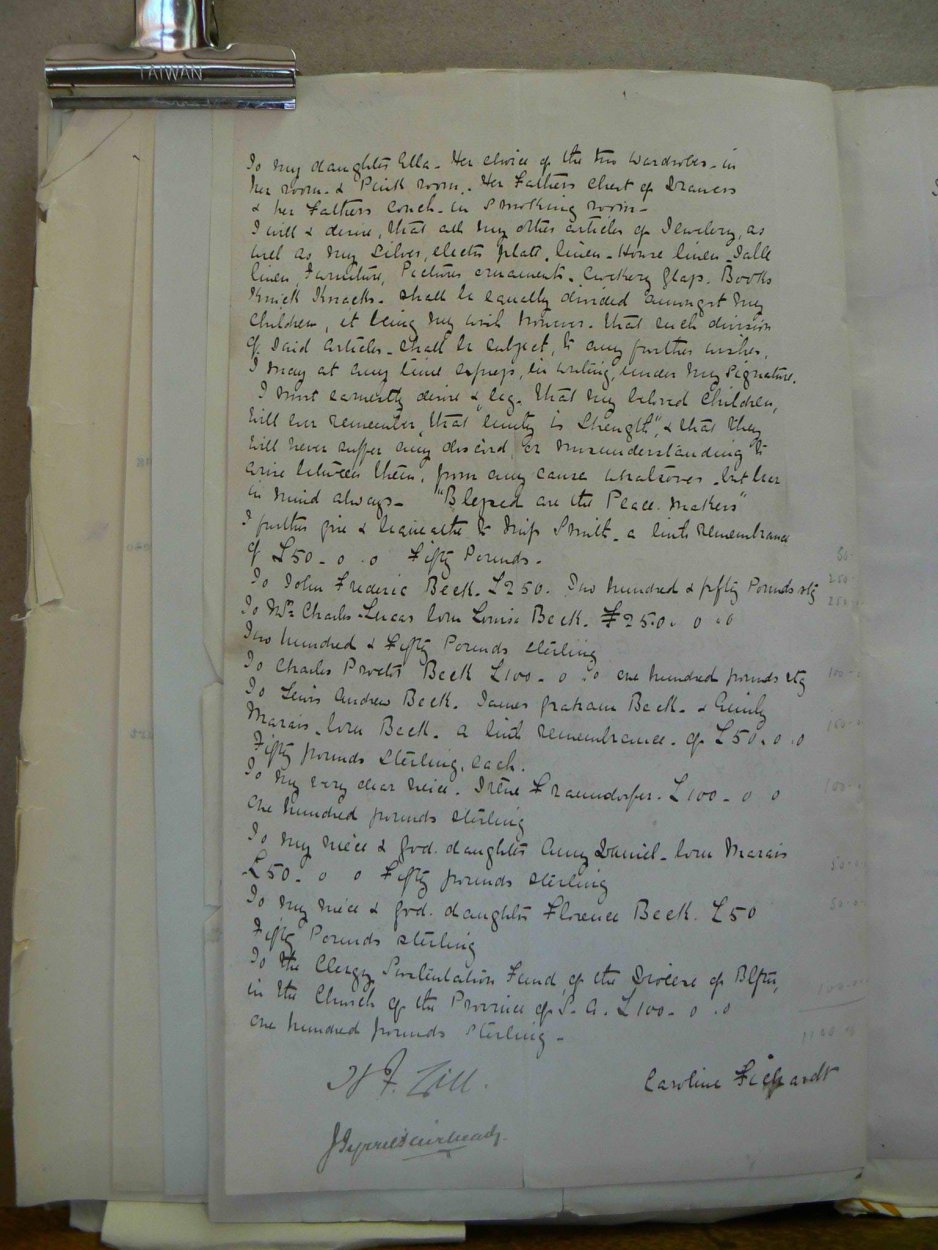 TAIWAN
To my daughter Ella - Her choice of the two wardrobes - in
her room - & Pink room. Her Fathers Chest of Drawers
& her Fathers Couch - in Smoking room -
I will & desire, that all my other articles of Jewelery, as
well as my Silver, electro plate, linen - House linen - Table
linen, Furniture, Pictures ornaments - Crockery glass, Books
Knick Knacks - shall be equally divided amongst my
Children, it being my wish however - that such division
of said articles - shall be subject, to any further wishes,
I may at any time express, in writing, under my signature.
I most earnestly desire & beg - that my beloved Children,
will ever remember, that "Unity is Strength", & that they
will never suffer any discord or misunderstanding to
arise between them, from any cause whatsoever - but bear
in mind always - "Blessed are the Peace Makers"
I further give & bequeathe to Miss Smith - a little remembrance
of £50 - 0 . 0 Fifty Pounds -
To John Frederic Beck - £250. Two hundred & fifty Pounds stg
To Mrs Charles Lucas born Louisa Beck. £250. 0 0
Two hundred & Fifty Pounds sterling
To Charles Proctor Beck £100 - 0 . 0 one hundred pounds stg
To Lewis Andrew Beck - James Graham Beck - & Emily
Marais - born Beck - a little remembrance - of £50. 0 . 0
Fifty pounds sterling, each.
To my very dear niece - Irène Fraundorfer. £100 - 0 0
one hundred pounds sterling
To my niece & god - daughter Amy Daniel - born Marais
£50 - 0 0 Fifty pounds sterling
To my niece & god - daughter Florence Beck. £50
Fifty Pounds sterling
To the Clergy Sustentation Fund of the Diocese of Blftn,
in the Church of the Province of S. A. £100 - 0 . 0
one hundred pounds sterling -
Caroline Fichardt